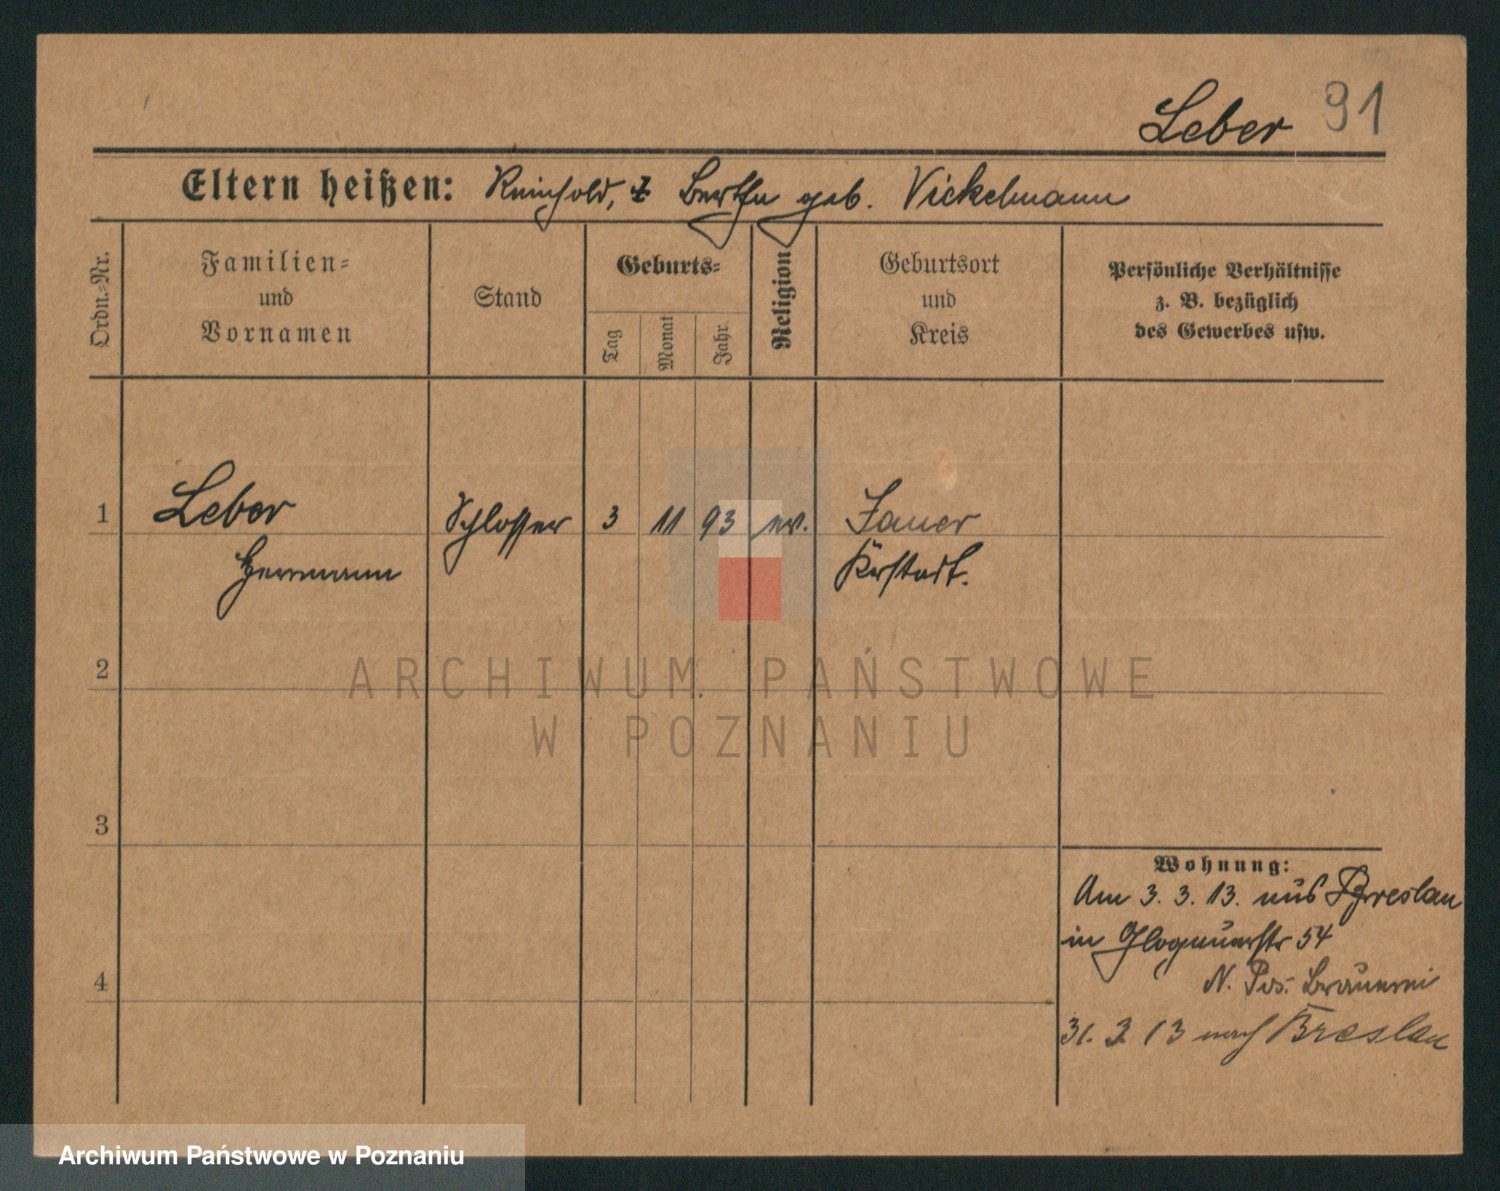 Leber 91
Eltern heißen: Reinhold, Bertha geb. Vickelmann
Ordn.-Nr.
Familien-
und
Vornamen
Stand
Geburts-
Tag
Monat
Jahr.
Religion
Geburtsort
und
Kreis
Persönliche Verhältnisse
z. B. bezüglich
des Gewerbes usw.
1 Leber Schlosser 3 11 93 ev. Jauer
Herrmann Krstadt.
2
3
4
Wohnung:
Am 3. 3. 13. aus Breslau
in Glogauerstr 54
N. Pos. Brauerei
31. 3 13 nach Breslau
ARCHIWUM PAŃSTWOWE
W POZNANIU
Archiwum Państwowe w Poznaniu